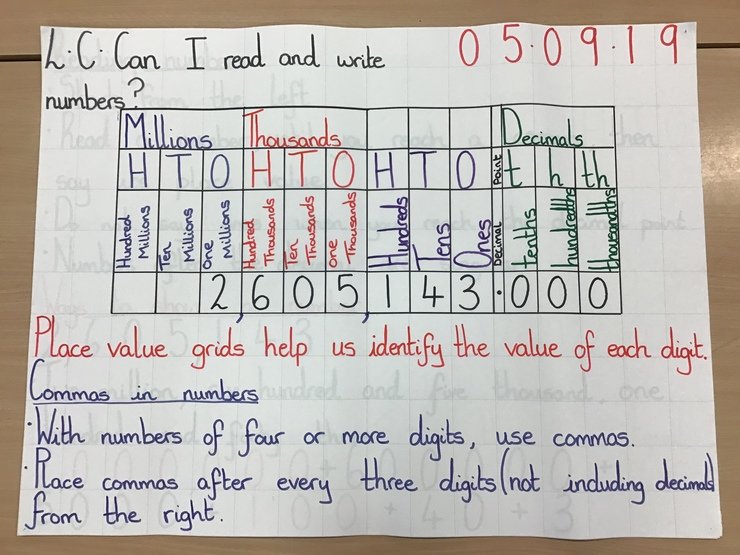 L.C: Can I read and write 05.09.19
numbers?
Millions Thousands Decimals
H T O H T O H T O Decimal Point t h th
Hundred Millions Ten Millions One Millions Hundred Thousands Ten Thousands One Thousands Hundreds Tens Ones tenths hundredths thousandths
2,605,143.000
Place value grids help us identify the value of each digit.
Commas in numbers
·With numbers of four or more digits, use commas.
·Place commas after every three digits (not including decimals)
from the right.